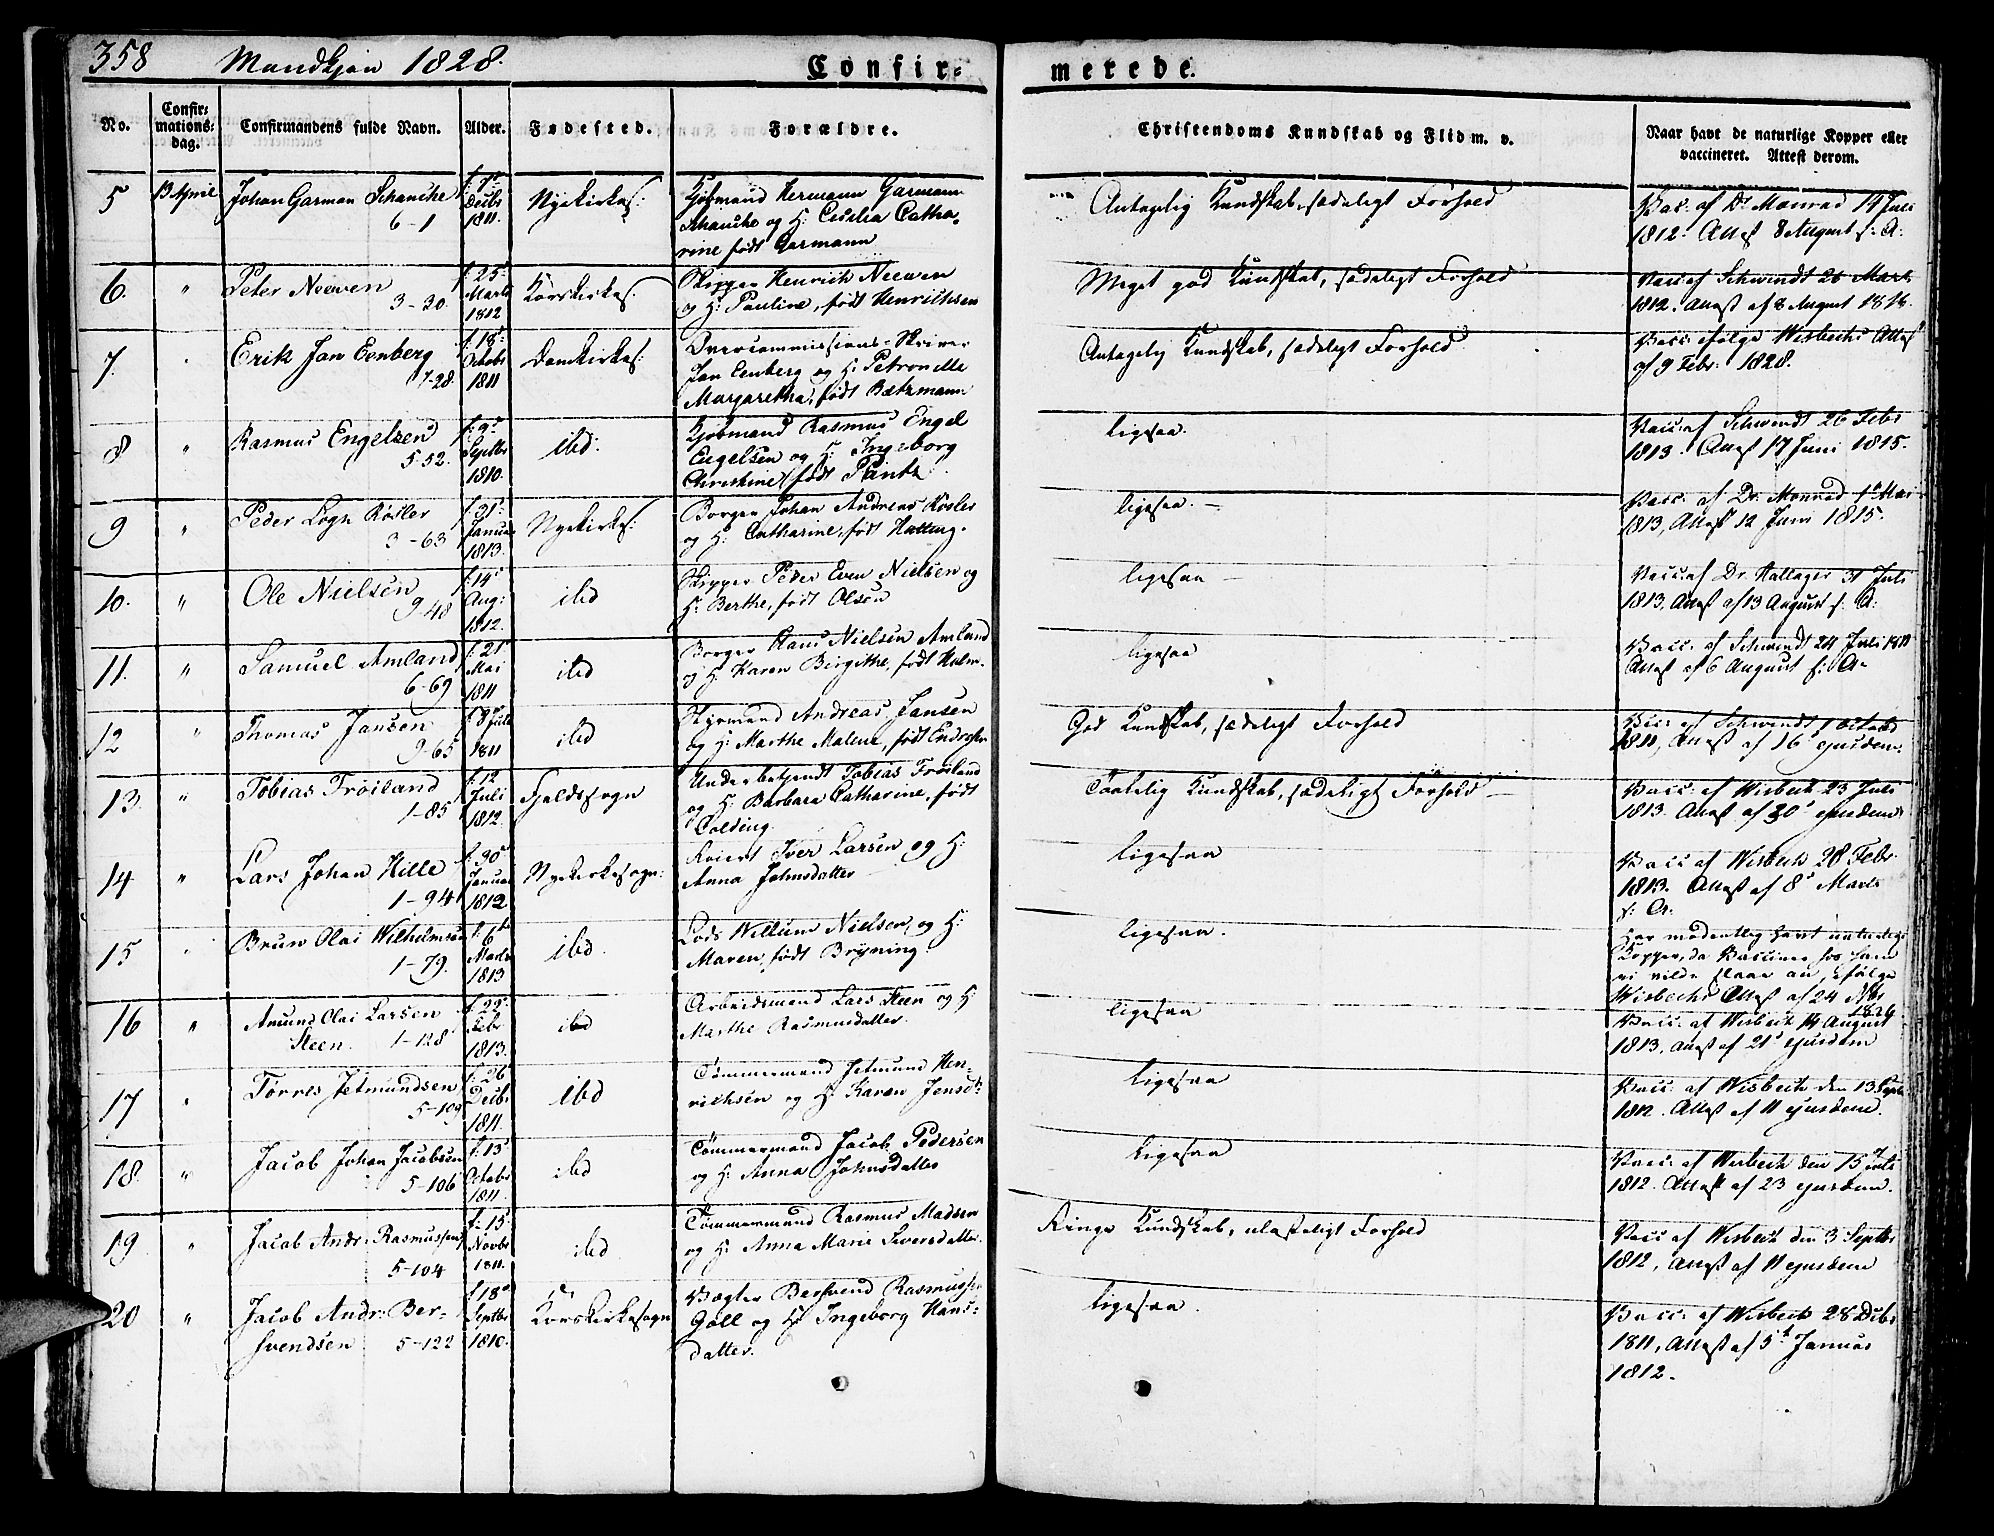 358 Mandkjøn 1828. Confir-
merede.
No.
Confir-
mations-
dag.
Confirmandens fulde Navn.
Alder.
Fødested.
Forældre.
Christendoms Kundskab og Flid m. v.
Naar havt de naturlige Kopper eller
vaccineret. Attest derom.
5 13 April Johan Garman Schanche
6-1
f: 7de
Decbr
1811.
Nyekirkes:
Kjøbmand Hermann Garmann
Schancke og H: Cecilia Catha-
rine født Garmann
Antagelig Kundskab, sædeligt Forhold
Vacc: af Dr Monrad 14 Juli
1812. Attest 8 August s: A:
6. " Peter Neewen
3-30
f: 25'
Marts
1812
Korskirkes.
Skipper Henrich Neewen
og H: Pauline, født Henrichsen
Meget god Kundskab, sædeligt Forhold
Vacc: af Schwindt 26 Marts
1812. Attest af 8 August 1818.
7. " Erik Jan Eenberg
7-28.
f: 18'
Octobr
1811
Domkirkes:
Overcommissions-Skriver
Jan Eenberg og H: Petronelle
Margaretha, født Bætzmann
Antagelig Kundskab, sædeligt Forhold.
Vacc: ifølge Wisbechs Attest
af 9 Febr: 1828.
8 " Rasmus Engelsen
5-52.
f: 9'
Septbr
1810.
ibd:
Kjøbmand Rasmus Engel
Engelsen og H: Ingeborg
Christine, født Pantz
ligesaa.
Vacc: af Schwindt 26 Febr
1813. Attest 17 Juni 1815.
9 " Peder Logn Røsler
3-63
f: 31'
Januar
1813.
Nyekirkes:
Borger Johan Andreas Røsler
og H: Catharine, født Hatting.
ligesaa. —
Vacc: af Dr. Monrad 1' Mai
1813, Attest 12 Juni 1815.
10. " Ole Nielsen
9-48
f: 14'
Aug:
1812.
ibd
Skipper Peder Even Nielsen og
H: Berthe, født Olsen
ligesaa —
Vacc: af Dr. Hallager 31 Juli
1813, Attest af 13 August s: A:
11. " Samuel Amland
6-69
f: 21'
Mai
1811
ibd
Borger Claus Nielsen Amland
og H: Karen Birgithe, født Holm.
ligesaa
Vacc: af Schwindt 24 Juli 1811
Attest af 6 August s: A:
12 " Thomas Jansen
9-65
f: 8 Juli
1811
ibd
Styrmand Andreas Jansen
og H: Marthe Malene, født Endresen
God Kundskab, sædeligt Forhold
Vacc: af Schwindt 1 Octobr
1811, Attest af 16' ejusdem.
13. " Tobias Frøiland
1-85
f: 12
Juli
1812.
Fjeldssogn
Underbetjendt Tobias Frøiland
og H: Barbara Catharine, født
Colding.
Taalelig Kundskab, sædeligt Forhold —
Vacc: af Wisbech 23 Juli
1813. Attest af 30' ejusdem.
14 " Lars Johan Hille
1-94
f: 30'
Januar
1812
Nyekirkesogn:
Iver Larsen og H:
Anna Johnsdatter
ligesaa
Vacc: af Wisbech 28 Febr.
1813. Attest af 8' Marts
s: A:
15 " Brun Olai Wilhelmsen
1-79.
f: 6te
Marts
1813
ibd.
Lods Willum Nielsen, og H:
Maren, født Bryning
ligesaa.
Har modentlig havt naturlige
Kopper, da Vaccinen hos ham
ei vilde slaae an, ifølge
Wisbechs Attest af 24 Nbr
1826
16 " Amund Olai Larsen
Steen. 1-128
f: 22'
Febr
1813.
ibd
Arbeidsmand Lars Steen og H:
Marthe Rasmusdatter.
ligesaa
Vacc. af Wisbech 14 August
1813, Attest af 21' ejusdem
17 " Tørres Jetmundsen
5-109
f: 26
Decbr
1811.
ibd
Tømmermand Jetmund Hen-
richsen og H: Karen Jensdtr:
ligesaa
Vacc: af Wisbech den 13 Septbr
1812. Attest af 11 ejusdem.
18. " Jacob Johan Jacobsen
5-106
f: 13'
Octobr
1811.
ibd
Tømmermand Jacob Pedersen
og H: Anna Johnsdatter
ligesaa
Vacc: af Wisbech den 15 Juli
1812. Attest af 23 ejusdem.
19 " Jacob Andr: Rasmussen
5-104
f: 15'
Novbr
1811.
ibd.
Tømmermand Rasmus Madsen
og H: Anna Marie Siversdatter.
Ringe Kundskab, ulasteligt Forhold
Vacc: af Wisbech den 3 Septbr
1812, Attest af 11 ejusdem
20 " Jacob Andr: Ber-
svendsen 5-122
f: 18de
Septbr
1810.
Korskirkesogn
Vægter Bersvend Rasmussen
Gøll og H: Ingeborg Hans-
datter.
ligesaa.
Vacc: af Wisbech 28 Decbr
1811, Attest af 5te Januar
1812.